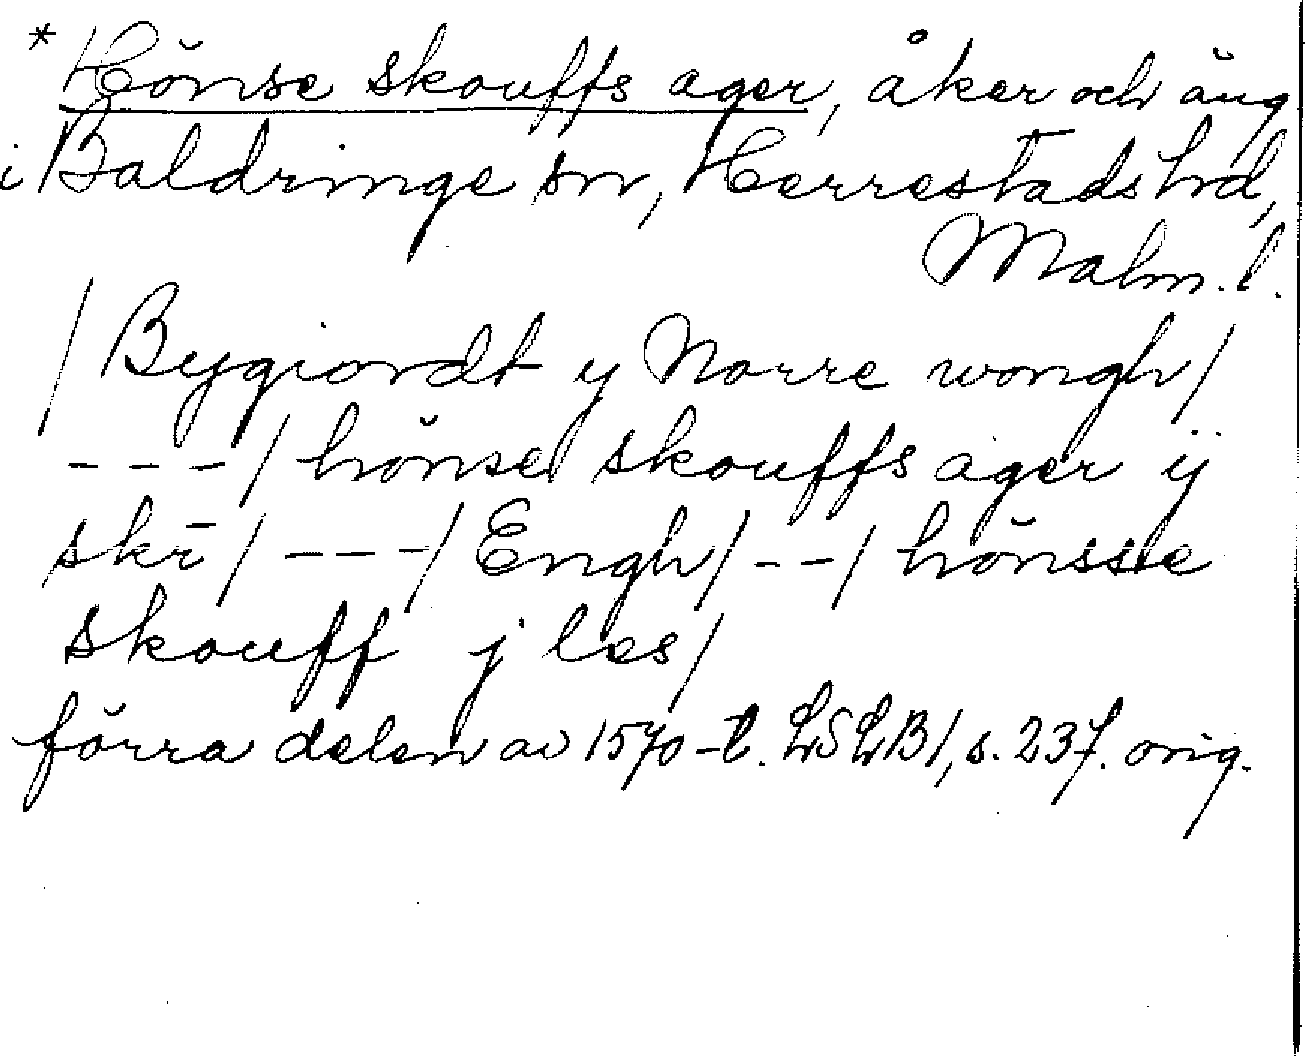 * Hönse skouffs ager, åker och äng
i Baldringe sn, Herrestads hd,
Malm. l.
/ Bygiordt y Norre wongh /
- - - / hönse skouffs ager ij
skr̄ / - - - / Engh / - - / hönsse
skouff j les /
förra delen av 1570-t. LSLB 1, s. 237. orig.